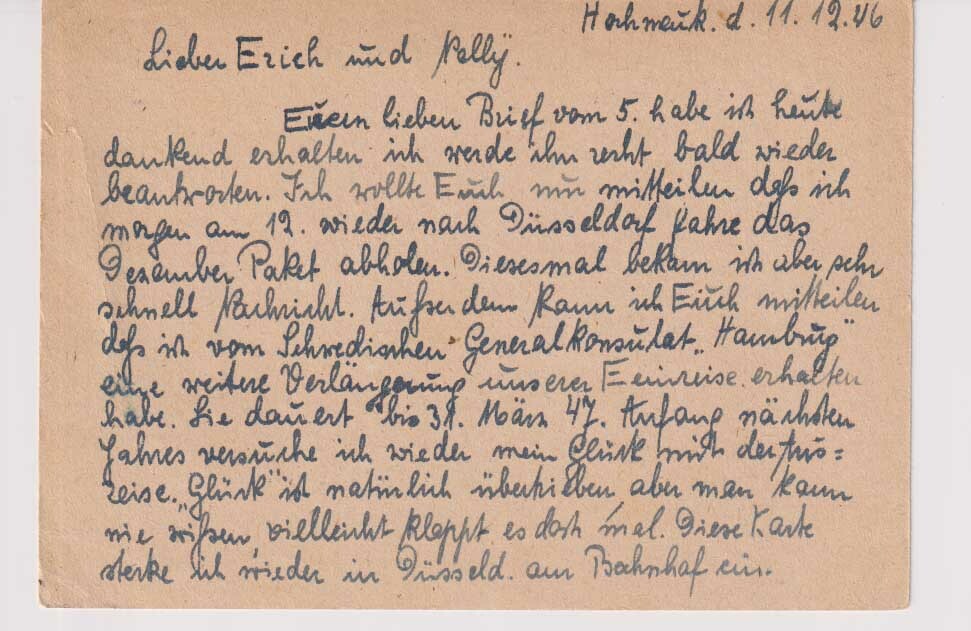 Hochneuk. d. 11.12.46
Lieber Erich und Nelly.
Euern lieben Brief vom 5. habe ich heute
dankend erhalten ich werde ihn recht bald wieder
beantworten. Ich wollte Euch nur mitteilen daß ich
morgen am 12. wieder nach Düsseldorf fahre das
Dezember Paket abholen. Diesesmal bekam ich aber sehr
schnell Nachricht. Außerdem kann ich Euch mitteilen
daß ich vom Schwedischen Generalkonsulat „Hamburg"
eine weitere Verlängerung unserer Eeinreise erhalten
habe. Sie dauert bis 31. März 47. Anfang nächsten
Jahres versuche ich wieder mein Glück mit der Aus=
reise. „Glück" ist natürlich übertrieben, aber man kann
nie wißen, vielleicht klappt es doch mal. Diese Karte
stecke ich wieder in Düsseld. am Bahnhof ein.